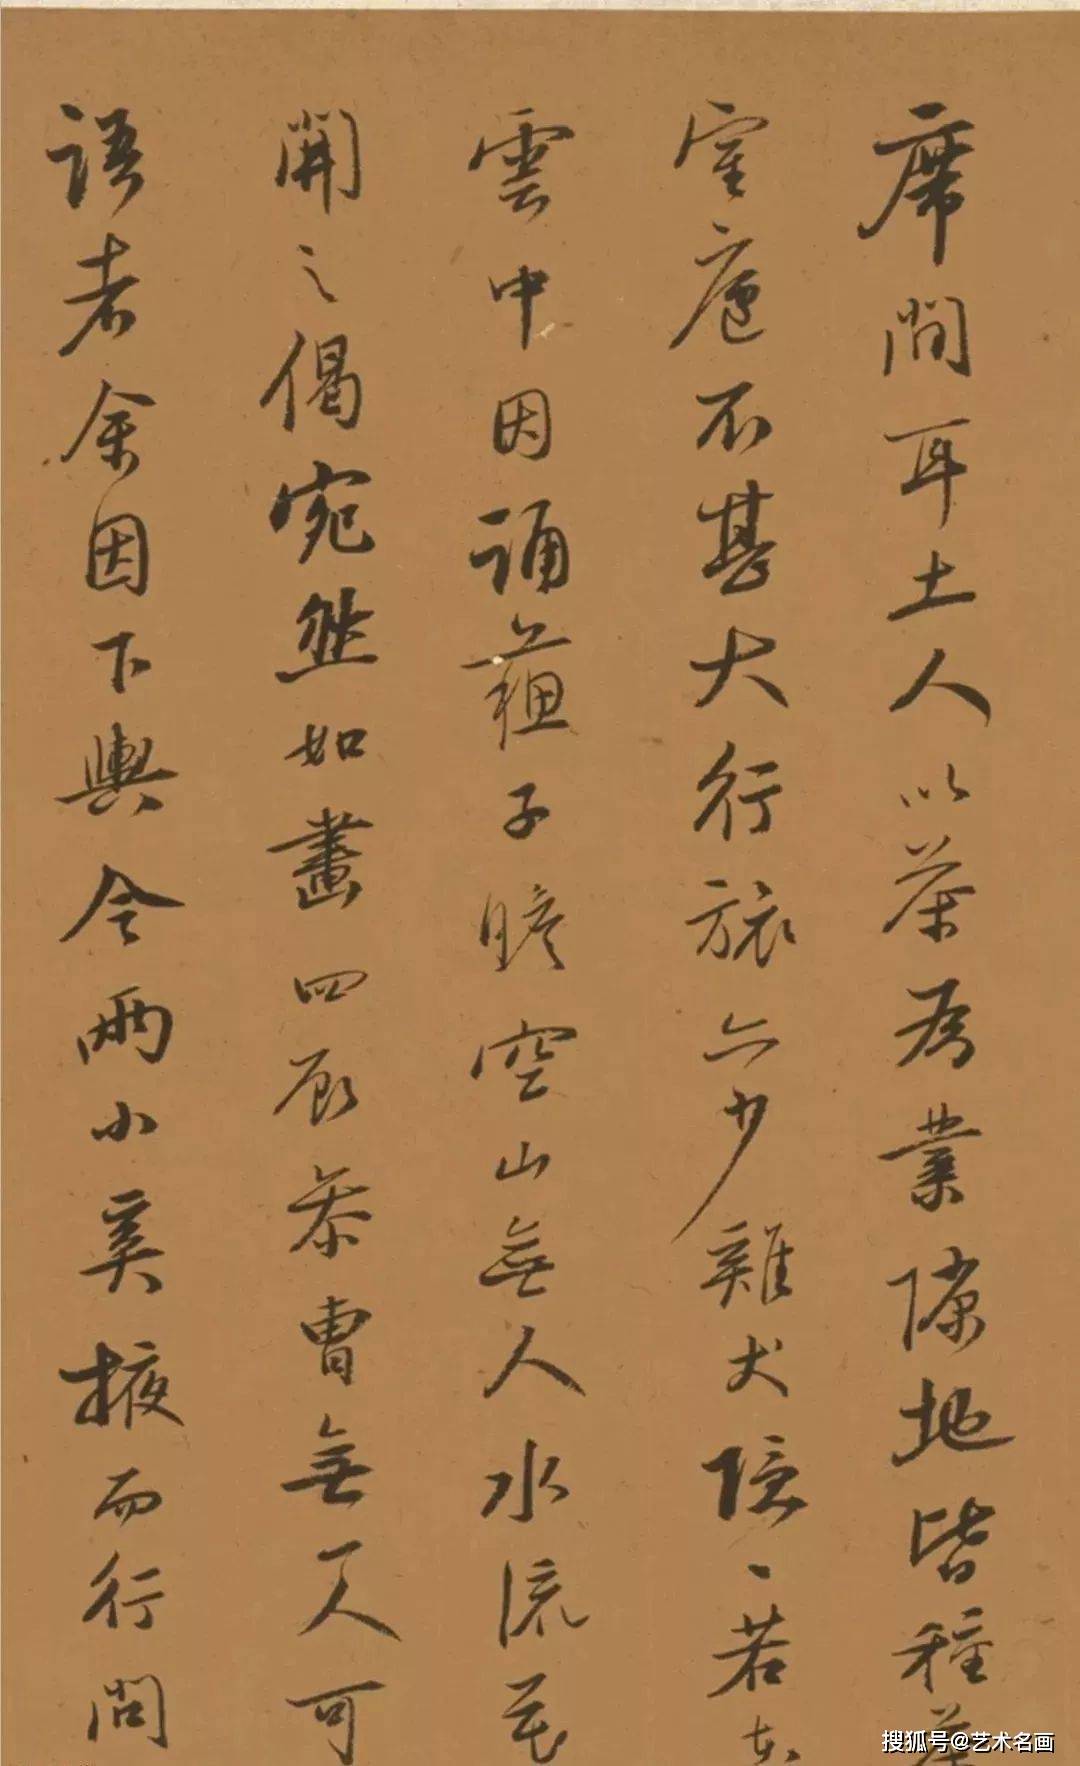 席間耳土人以茶為業隙地皆種茶
室廬不甚大行旅亦少雞犬隱〻若在
雲中因誦蘓子瞻空山無人水流花
開之偈宛然如畫四顧參曹無一人可
語者余因下輿令兩小奚掖而行問
搜狐号@艺术名画